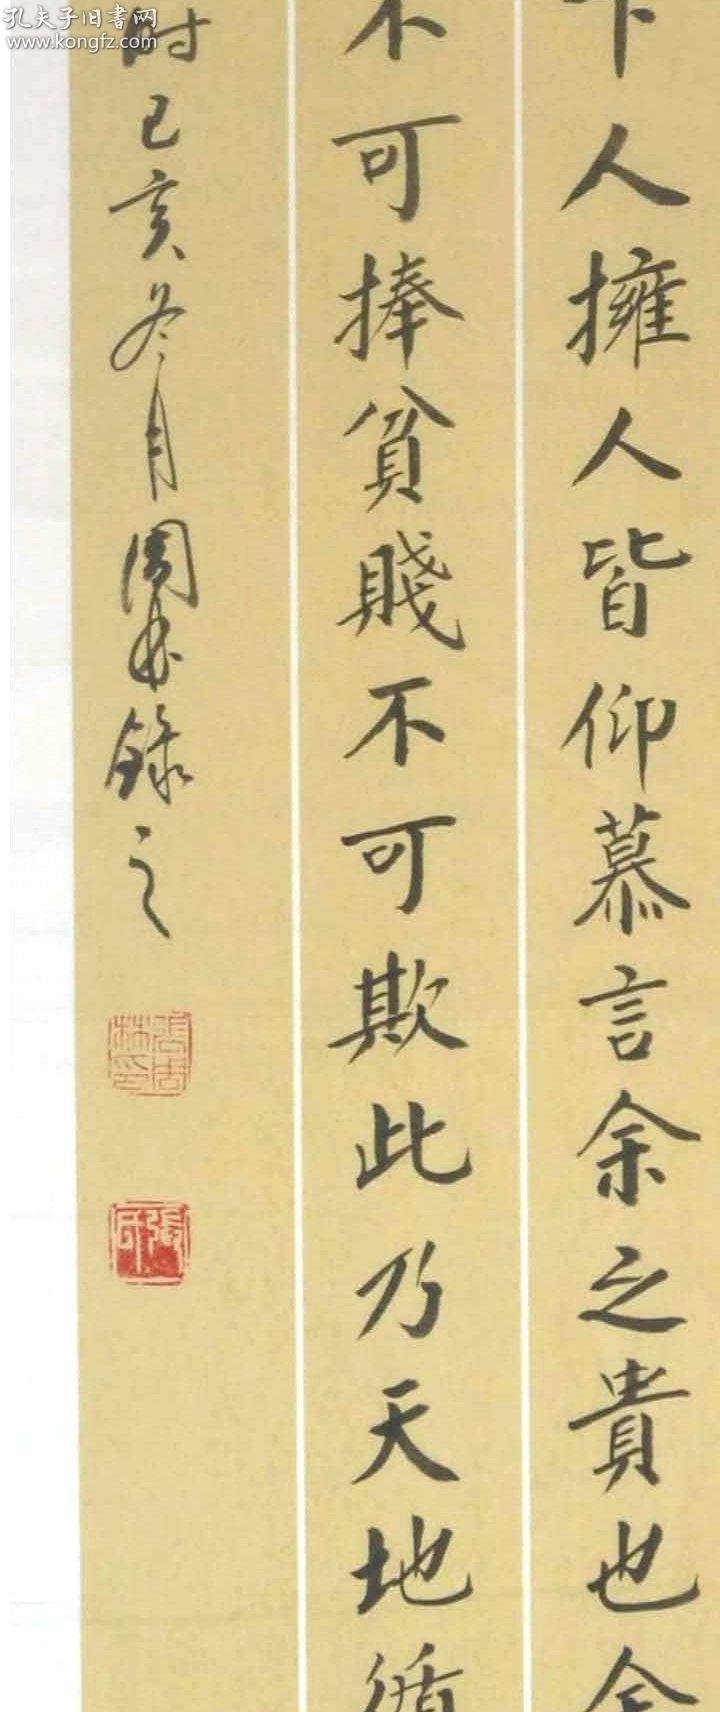 孔夫子旧书网
www.kongfz.com
下人擁人皆仰慕言余之貴也余
不可捧貧賤不可欺此乃天地循
时己亥冬月周林錄之
張周林印
張